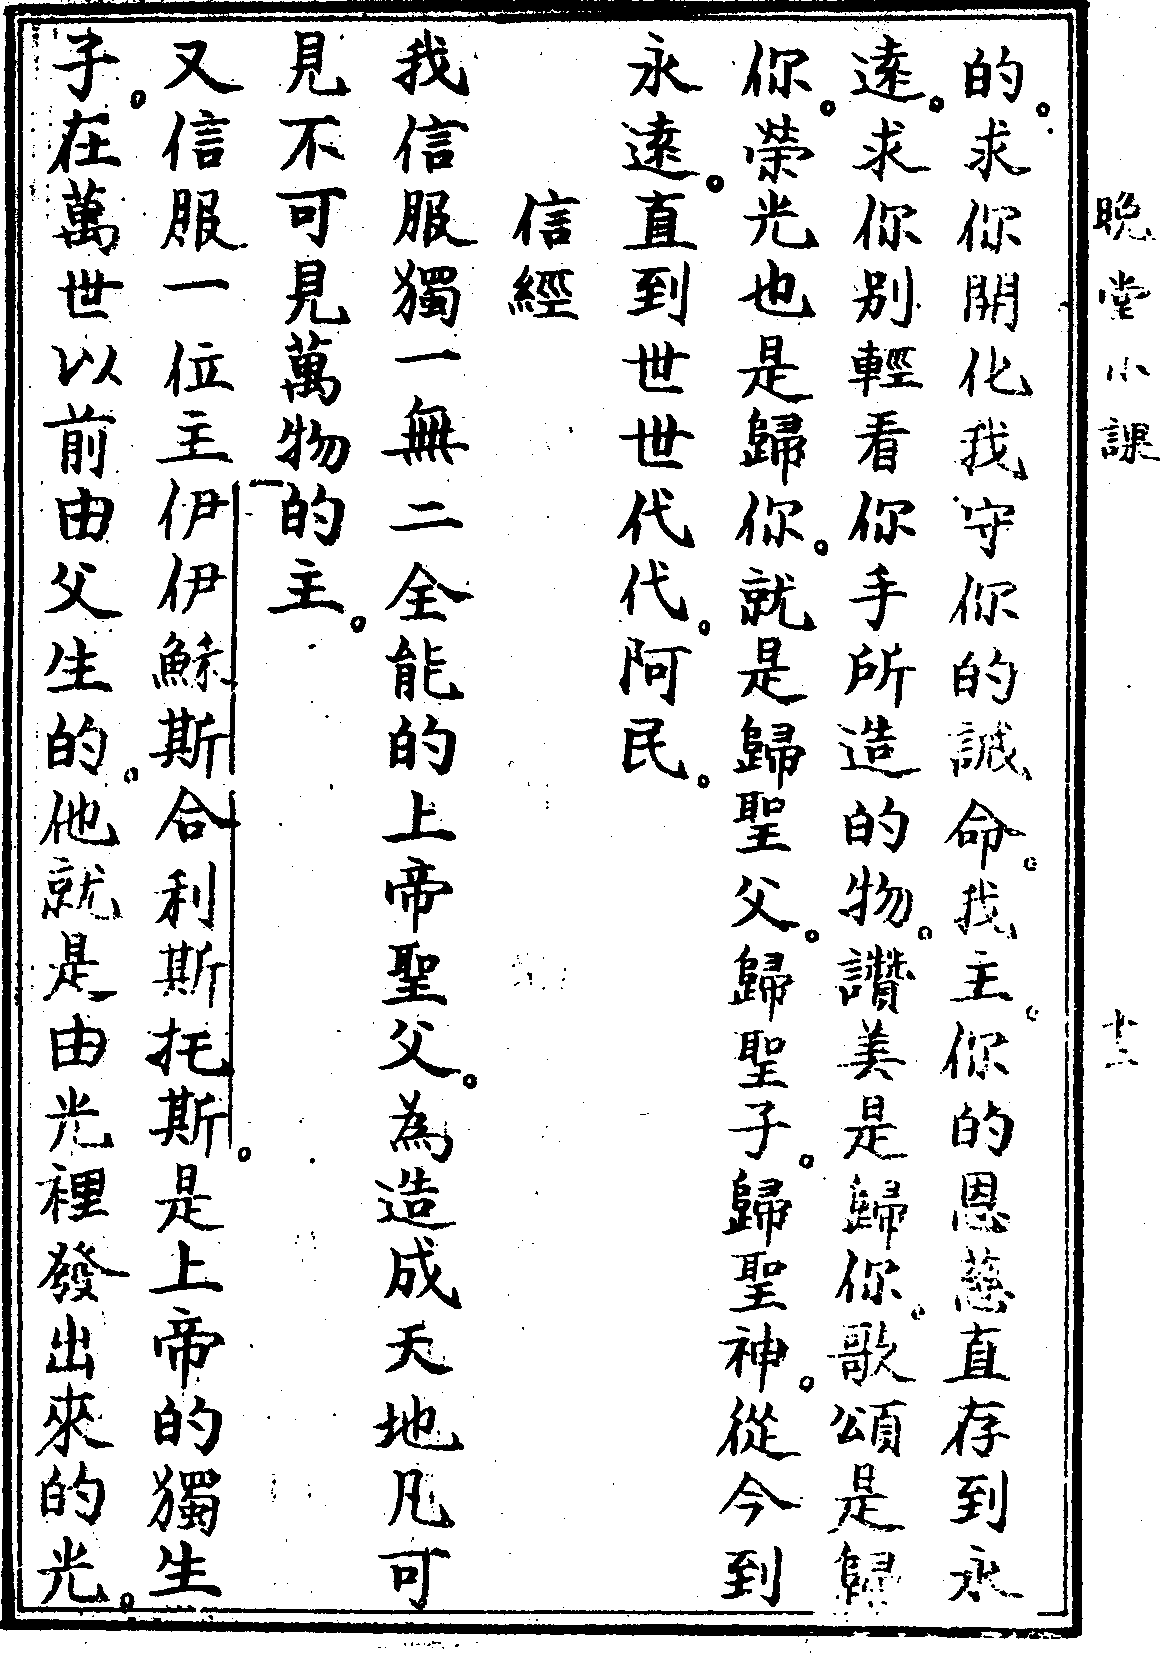 晚堂小課 十二
的。求你開化我守你的誡命。我主。你的恩慈直存到永
遠。求你別輕看你手所造的物。讚美是歸你。歌頌是歸
你。榮光也是歸你。就是歸聖父。歸聖子。歸聖神。從今到
永遠。直到世世代代。阿民。
信經
我信服獨一無二全能的上帝聖父。為造成天地凡可
見不可見萬物的主。
又信服一位主伊伊穌斯合利斯托斯。是上帝的獨生
子。在萬世以前由父生的。他就是由光裡發出來的光。